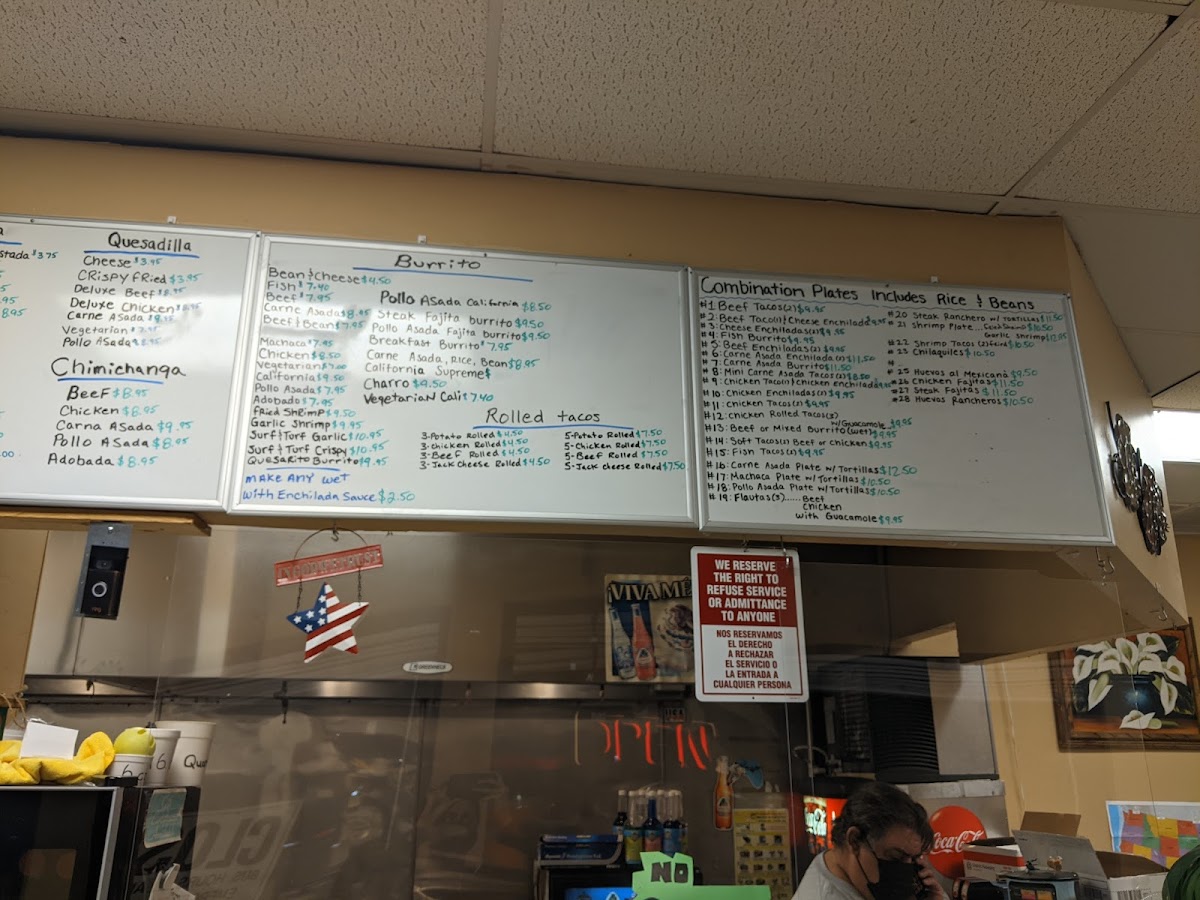 stada $3.75
.95
8.95
.00
Quesadilla
Cheese $3.95
CRispy fRied $3.95
Deluxe Beef
Deluxe Chicken
Carne ASada
Vegetarian
Pollo ASada
Chimichanga
BeeF $8.95
Chicken $8.95
Carna ASada $9.95
Pollo ASada $8.95
Adobada $8.95
Burrito
Bean & Cheese $4.50
Fish $7.40
Beef $7.95
Carne Asada $8.95
Beef & Bean $7.95
Machaca $7.95
Chicken $8.50
Vegetarian $7.00
California $9.50
Pollo Asada $7.95
Adobado $7.95
fRied ShRimp $9.50
Garlic Shrimp $9.95
Surf & Turf Garlic $10.95
Surf & Turf Crispy $10.95
QuesaRito Burrito $9.95
make Any wet
with Enchilada Sauce $2.50
Pollo Asada California $8.50
Steak Fajita burrito $9.50
Pollo Asada Fajita burrito $9.50
Breakfast Burrito $7.95
Carne Asada, Rice, Bean $8.95
California Supreme $
Charro $9.50
VegetariaN Cali $7.40
Rolled tacos
3-Potato Rolled $4.50
3-chicken Rolled $4.50
3-Beef Rolled $4.50
3-Jack Cheese Rolled $4.50
5-Potato Rolled $7.50
5-Chicken Rolled $7.50
5-Beef Rolled $7.50
5-Jack cheese Rolled $7.50
Combination Plates Includes Rice & Beans
#1 Beef Tacos(2) $9.95
#2: Beef Taco(1) Cheese Enchilada
#3: Cheese Enchiladas(2) $9.95
#4: Fish Burrito $9.95
#5: Beef Enchiladas(2) $9.95
#6: Carne Asada Enchilada(2) $11.50
#7: Carne Asada Burrito $11.50
#8: Mini Carne Asada Tacos(2) $8.50
#9: Chicken Taco(1) chicken Enchilada
#10: Chicken Enchiladas(2) $9.95
#11: chicken Tacos(2) $9.95
#12: Chicken Rolled Tacos(3)
w/Guacamole $9.95
#13: Beef or Mixed Burrito (wet) $9.95
#14: Soft Tacos(2) Beef or chicken $9.95
#15: Fish Tacos(2) $9.95
#16: Carne Asada Plate w/ Tortillas $12.50
#17: Machaca Plate w/ Tortillas $10.50
#18: Pollo Asada Plate w/ Tortillas $10.50
#19: Flautas(3)......Beef
Chicken
with Guacamole $9.95
#20 Steak Ranchero w/ Tortillas $11.50
#21 Shrimp Plate...
$10.50
Garlic Shrimp
#22 Shrimp Tacos (2) fried $10.50
#23 Chilaquiles $10.50
#
#25 Huevos al Mexicana $9.50
#26 Chicken Fajitas $11.50
#27 Steak Fajitas $11.50
#28 Huevos Rancheros $10.50
WE RESERVE
THE RIGHT TO
REFUSE SERVICE
OR ADMITTANCE
TO ANYONE
NOS RESERVAMOS
EL DERECHO
A RECHAZAR
EL SERVICIO O
LA ENTRADA A
CUALQUIER PERSONA
VIVA ME
ring
6
6
Qua
OPEN
CLO
NO
Coca-Cola